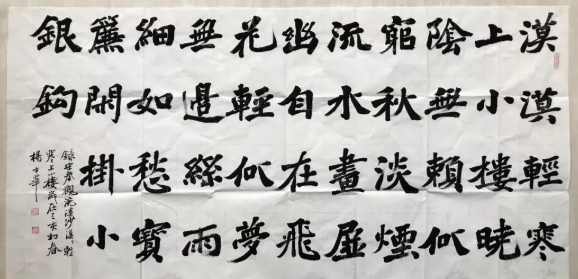 漠漠輕寒
上小樓曉
陰無賴似
窮秋淡煙
流水畫屏
幽自在飛
花輕似夢
無邊絲雨
細如愁寶
簾閑掛小
銀鈎
錄秦觀浣溪沙漠漠輕
寒上小樓歲在亥初春
楊士華